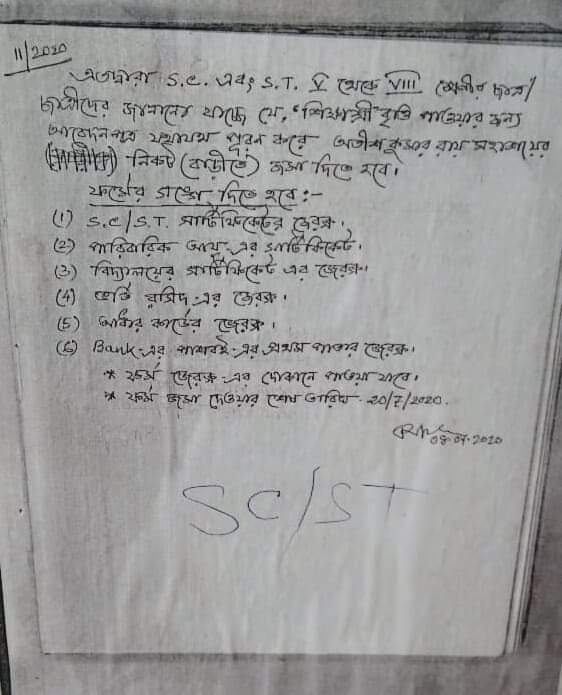 11/2020
এতদ্বারা S.C. এবং S.T. V থেকে VIII শ্রেণীর ছাত্র/
ছাত্রীদের জানানো যাচ্ছে যে, "শিক্ষাশ্রী" বৃত্তি পাওয়ার জন্য
আবেদনপত্র যথাযথ পূরন করে অতীশ কুমার রায় মহাশয়ের
নিকট (বাড়ীতে) জমা দিতে হবে।
ফর্মের সঙ্গে দিতে হবে :-
(1) S.C/S.T. সার্টিফিকেটের জেরক্স।
(2) পারিবারিক আয়-এর সার্টিফিকেট।
(3) বিদ্যালয়ের সার্টিফিকেট এর জেরক্স।
(4) ভর্তি রসিদ-এর জেরক্স।
(5) আধার কার্ডের জেরক্স।
(6) Bank-এর পাশবই-এর প্রথম পাতার জেরক্স।
* ফর্ম জেরক্স-এর দোকানে পাওয়া যাবে।
* ফর্ম জমা দেওয়ার শেষ তারিখ 20/7/2020.
08.07.2020
SC/ST